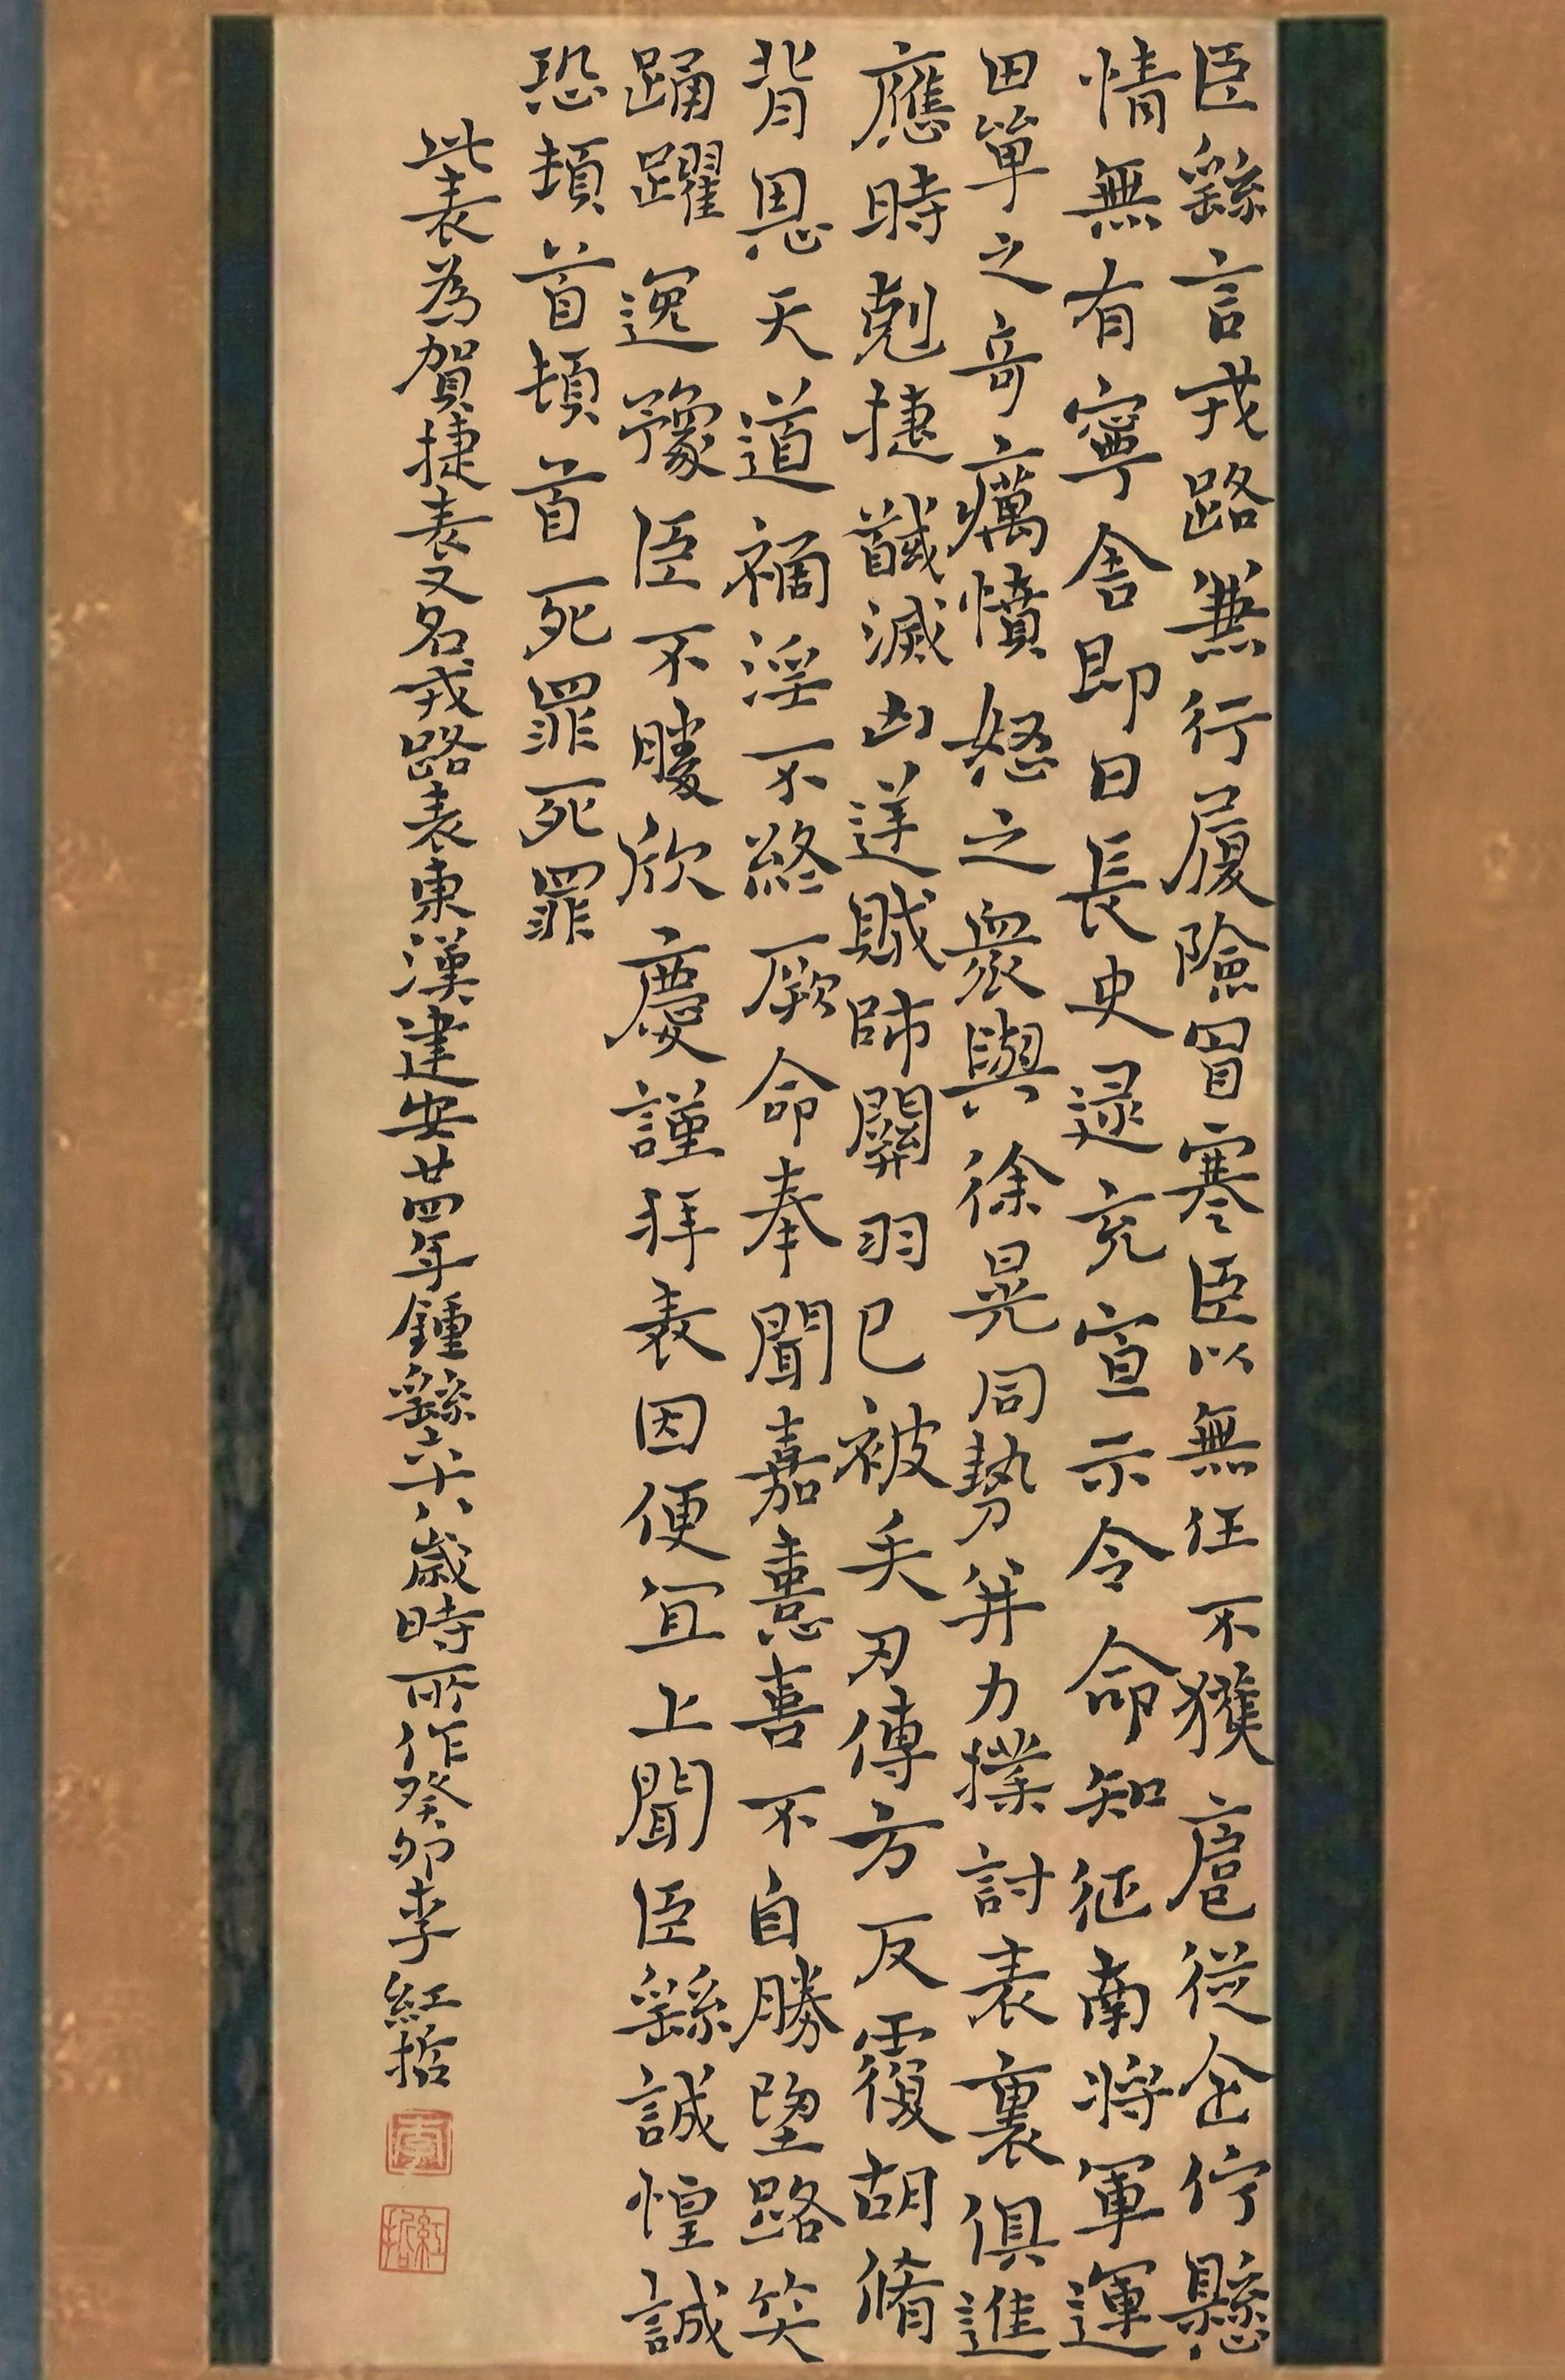 臣繇言戎路兼行履險冒寒臣以無任不獲扈從企佇懸
情無有寧舍即日長史逯充宣示令命知征南將軍運
田單之奇厲憤怒之衆與徐晃同勢并力撲討表裏俱進
應時剋捷馘滅凶逆賊帥關羽已被矢刃傅方反覆胡脩
背恩天道禍淫不終厥命奉聞嘉憙喜不自勝望路笑
踊躍逸豫臣不勝欣慶謹拜表因便宜上聞臣繇誠惶誠
恐頓首頓首死罪死罪
此表為賀捷表又名戎路表東漢建安廿四年鍾繇六十八歲時所作癸卯李紅哲
李
紅哲